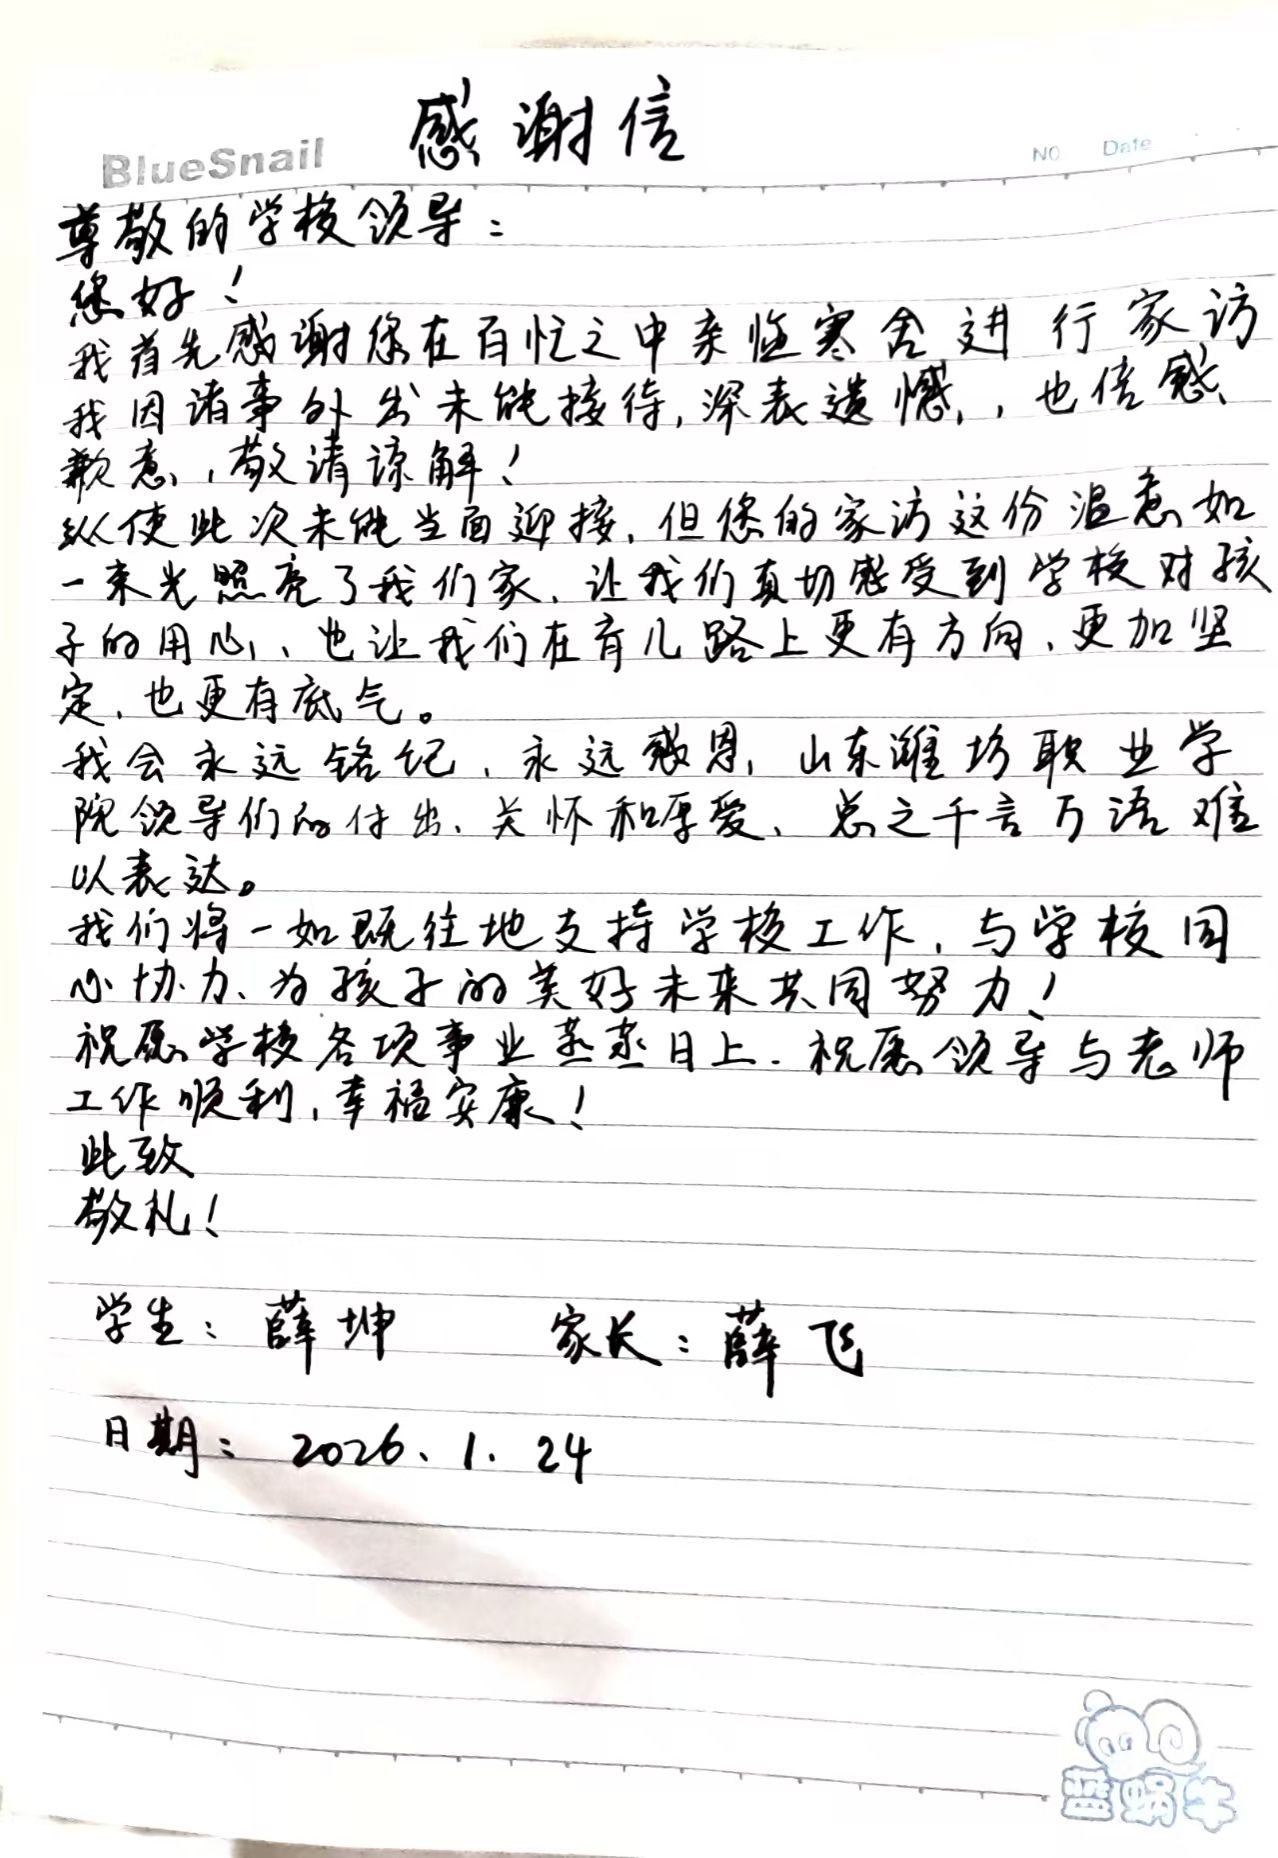 感谢信
BlueSnail
NO. Date
尊敬的学校领导：
您好！
我首先感谢您在百忙之中亲临寒舍进行家访
我因诸事外出未能接待，深表遗憾，，也倍感
歉意，敬请谅解！
纵使此次未能当面迎接，但您的家访这份温意如
一束光照亮了我们家，让我们真切感受到学校对孩
子的用心，也让我们在育儿路上更有方向，更加坚
定，也更有底气。
我会永远铭记，永远感恩，山东潍坊职业学
院领导们的付出、关怀和厚爱，总之千言万语难
以表达。
我们将一如既往地支持学校工作，与学校同
心协力、为孩子的美好未来共同努力！
祝愿学校各项事业蒸蒸日上．祝愿领导与老师
工作顺利，幸福安康！
此致
敬礼！
学生：薛坤 家长：薛飞
日期：2026.1.24
蓝蜗牛